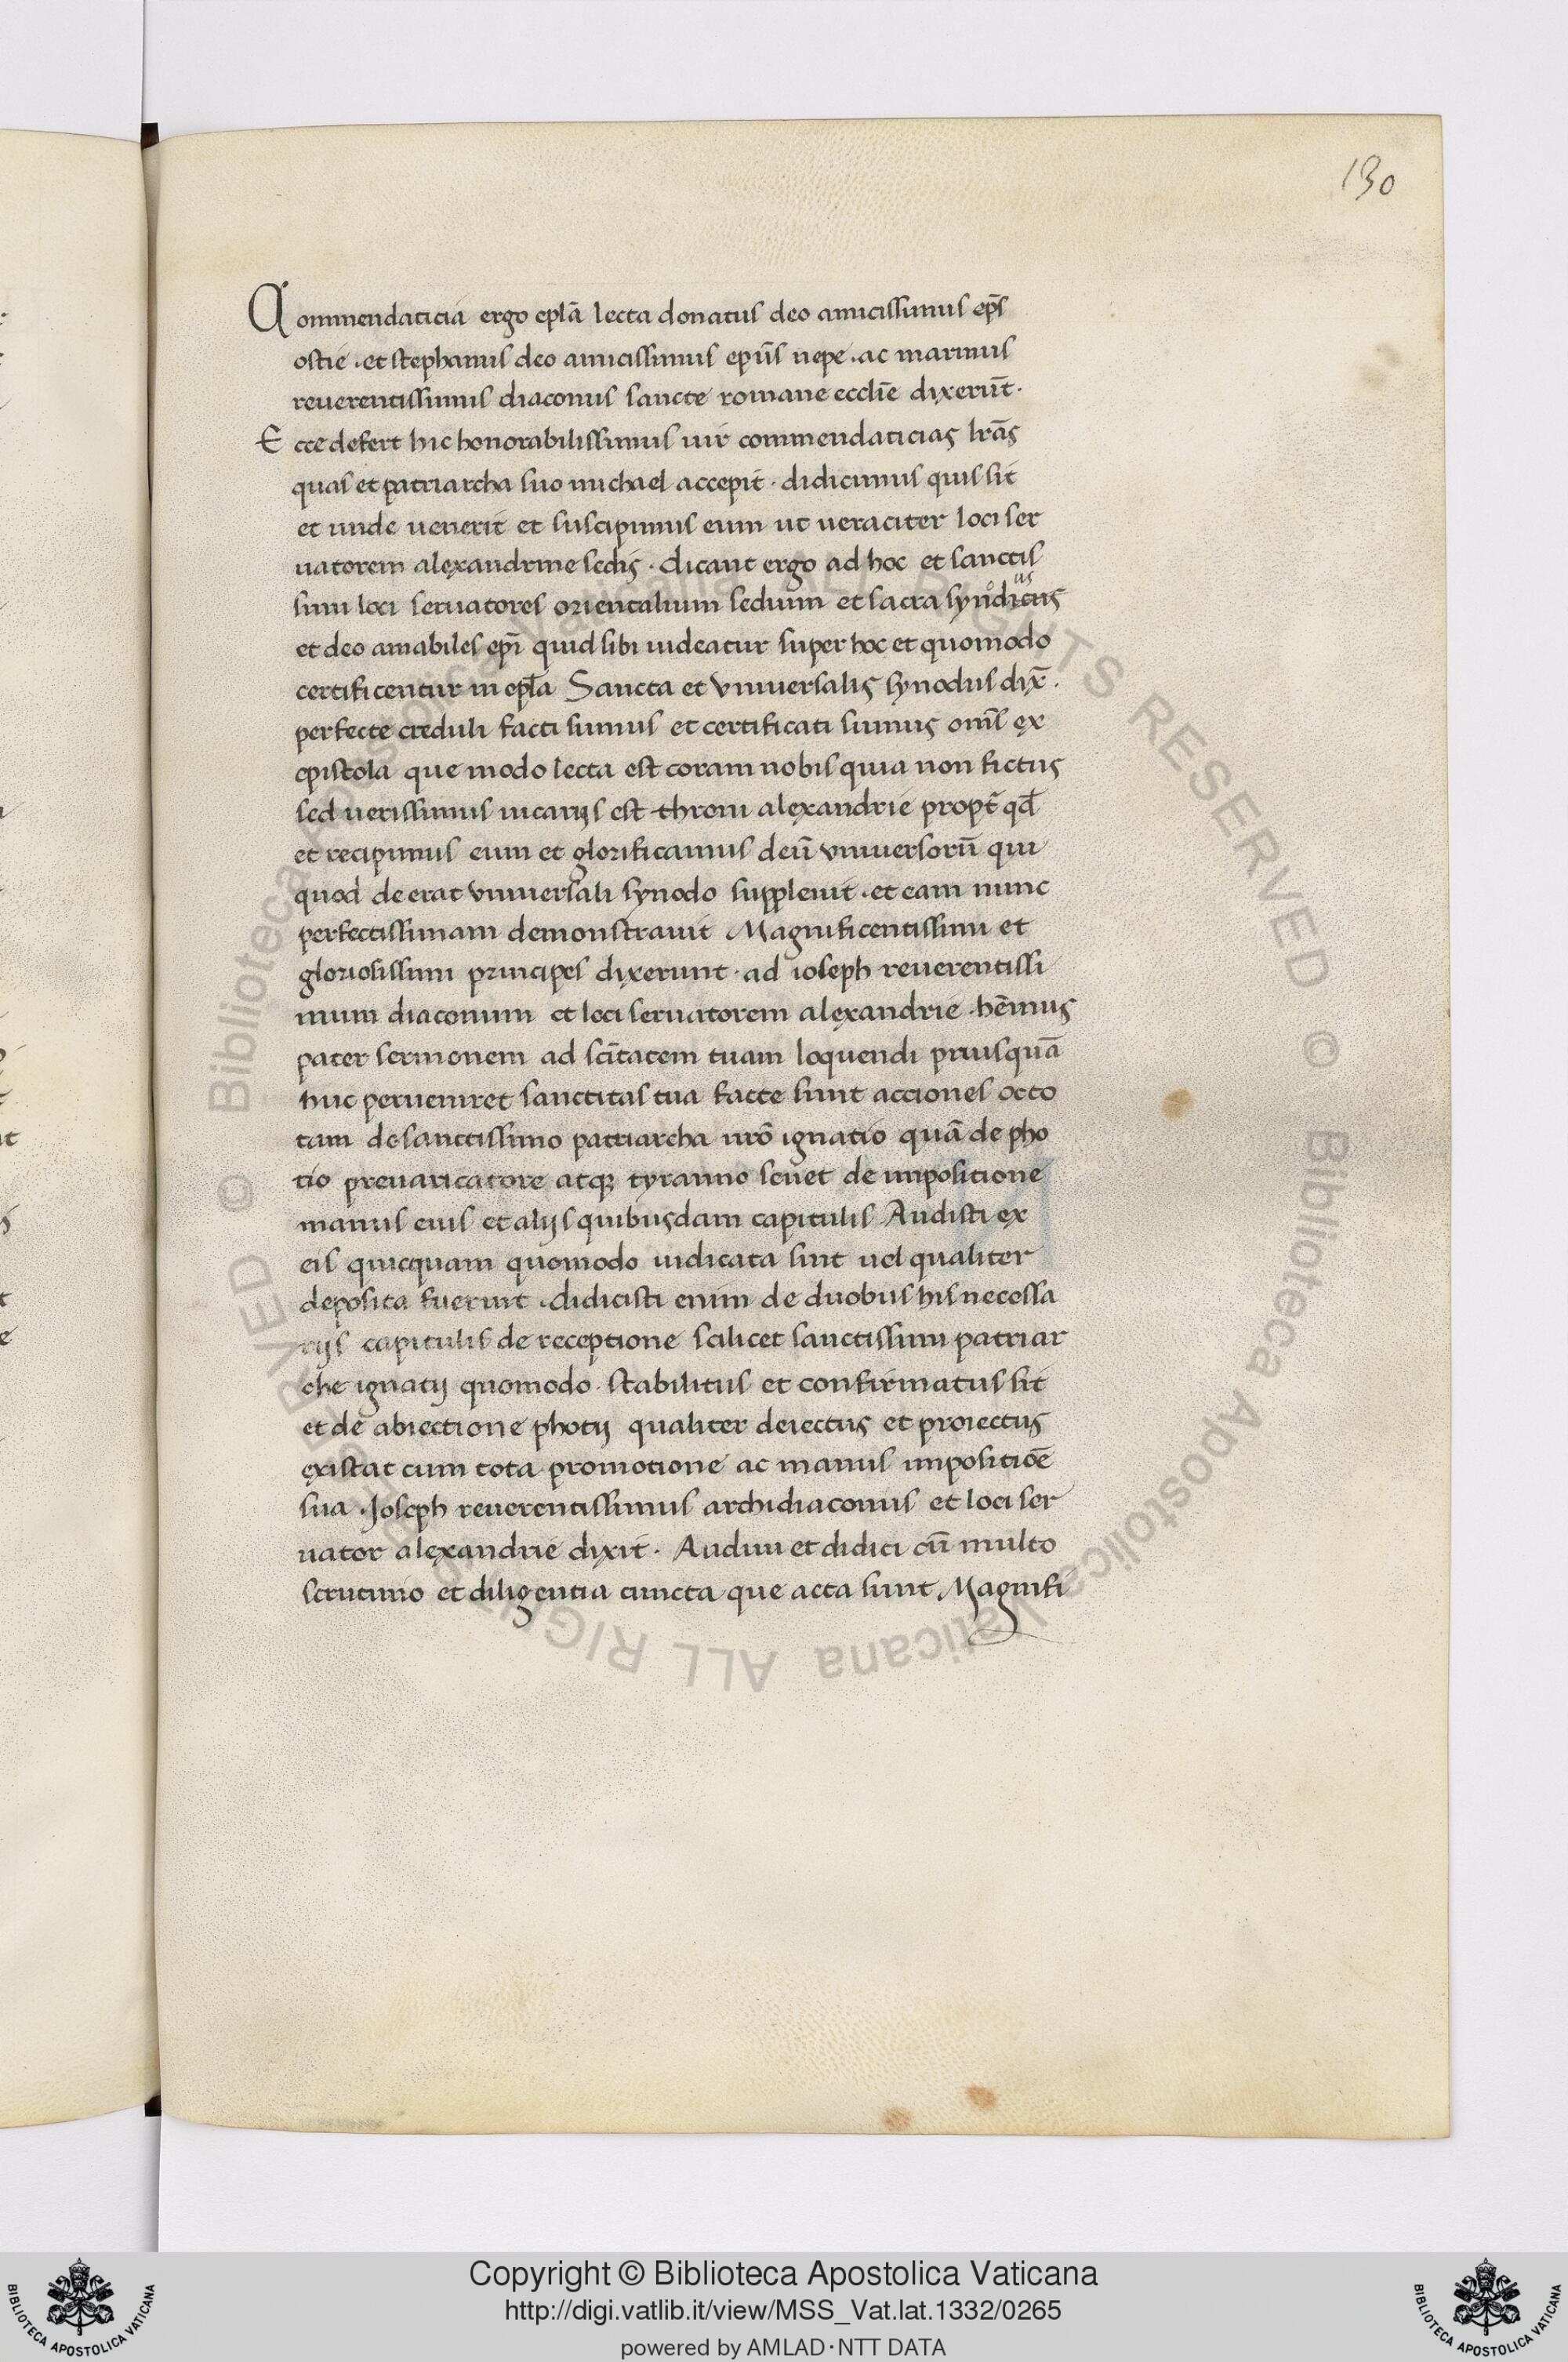 130
Commendaticia ergo epła lecta donatus deo amicissimus ep̄s
ostie. et stephanus deo amicissimus ep̄us nepe. ac marinus
reuerentissimus diaconus sancte romane eccłie dixerūt.
Ecce defert hic honorabilissimus uir commendaticias lr̄as
quas et patriarcha suo michael accepit. didicimus quis sit
et unde uenerit et suscipimus eum ut ueraciter loci ser
uatorem alexandrine sedis. dicant ergo ad hoc et sanctis
simi loci seruatores orientalium sedium et sacra synodicus
et deo amabiles ep̄i quid sibi uideatur super hoc et quomodo
certificentur in epła Sancta et vniuersalis synodus dix̄.
perfecte creduli facti sumus et certificati sumus om̄s ex
epistola que modo lecta est coram nobis quia non fictus
sed uerissimus uicarijs est throni alexandrie propt̄ qd̄
et recipimus eum et glorificamus deū vniuersorū qui
quod de erat vniuersali synodo suppleuit. et eam nunc
perfectissimam demonstrauit Magnificentissimi et
gloriosissimi principes dixerunt. ad ioseph reuerentissi
mum diaconum et loci seruatorem alexandrie. hēmus
pater sermonem ad sc̄itatem tuam loquendi priusquā
huc perueniret sanctitas tua facte sunt acciones octo
tam de sanctissimo patriarcha nr̄o ignatio quā de pho
tio preuaricatore atqꝫ tyranno seu et de impositione
manus eius et alijs quibusdam capitulis Audisti ex
eis quicquam quomodo iudicata sint uel qualiter
deposita fuerint. didicisti enim de duobus his necessa
rijs capitulis de receptione scilicet sanctissimi patriar
che ignatij quomodo stabilitus et confirmatus sit
et de abiectione photij qualiter deiectus et proiectus
existat cum tota promotione ac manus impositiōe
sua. Joseph reuerentissimus archidiaconus et loci ser
uator alexandrie dixit. Audiui et didici cū multo
scrutinio et diligentia cuncta que acta sunt Magnifi
© Biblioteca Apostolica Vaticana ALL RIGHTS RESERVED © Biblioteca Apostolica Vaticana ALL RIGHTS RESERVED
Copyright © Biblioteca Apostolica Vaticana
http://digi.vatlib.it/view/MSS_Vat.lat.1332/0265
powered by AMLAD·NTT DATA
BIBLIOTECA APOSTOLICA VATICANA
BIBLIOTECA APOSTOLICA VATICANA